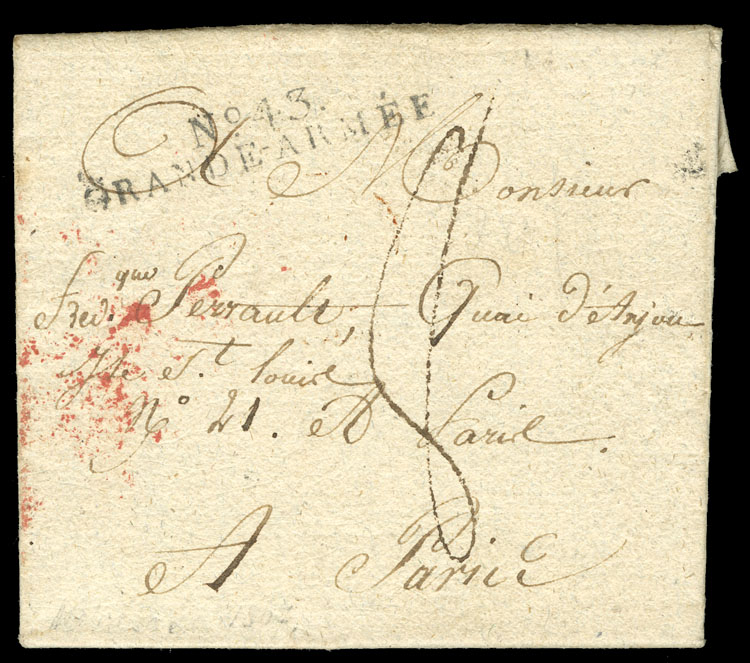 No 43.
GRANDE-ARMÉE
A Monsieur
Fred.que Perrault, Quai d'Anjou
Isle St. Louis
No 21. A Paris.
A Paris
8